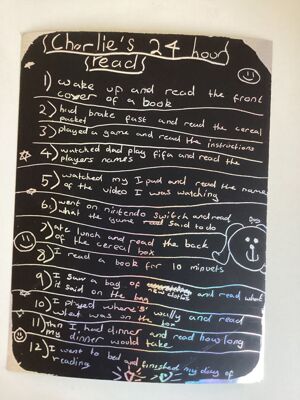 Charlie's 24 hour
read
1) wake up and read the front
cover of a book
2) had brake fast and read the cereal
packet
3) played a game and read the instructions
4) watched dad play fifa and read the
players names
5) watched my Ipad and read the name
of the video I was watching
6) went on nintendo switch and read
what the game said to do
7) ate lunch and read the back
of the cereal box
8) I read a book for 10 minuets
9) I saw a bag of new clothes and read what
it said on the bag
10) I played where's wally and read
what was on the box
11) Then I had dinner and read how long
my dinner would take
12) I went to bed and finished my day of
reading